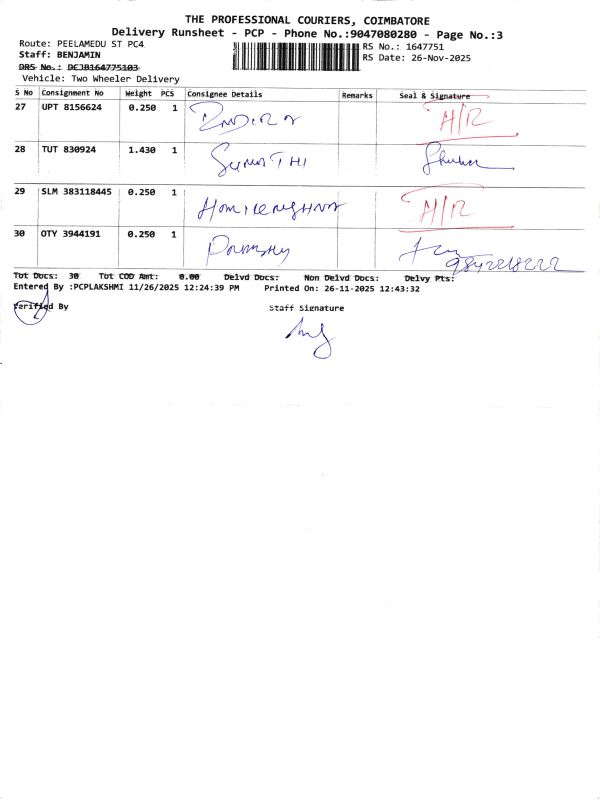 THE PROFESSIONAL COURIERS, COIMBATORE
Delivery Runsheet - PCP - Phone No.:9047080280 - Page No.:3
Route: PEELAMEDU ST PC4
RS No.: 1647751
Staff: BENJAMIN
RS Date: 26-Nov-2025
DRS No.: DCJB164775103
Vehicle: Two Wheeler Delivery
S No Consignment No Weight PCS Consignee Details Remarks Seal & Signature
27 UPT 8156624 0.250 1 A/R
28 TUT 830924 1.430 1
29 SLM 383118445 0.250 1 A/R
30 OTY 3944191 0.250 1
Tot Docs: 30 Tot COD Amt: 0.00 Delvd Docs: Non Delvd Docs: Delvy Pts:
Entered By :PCPLAKSHMI 11/26/2025 12:24:39 PM Printed On: 26-11-2025 12:43:32
Verified By Staff Signature